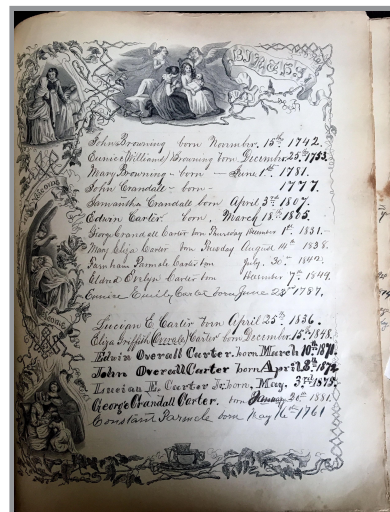 BIRTHS
John Browning born November. 15th 1742.
Eunice (Williams) Browning born December 25th 1753.
Mary Browning - born - June 1st 1781.
John Crandale - born - 1777.
Samantha Crandale born April 3rd 1807.
Edwin Carter. born, March 18th 1805.
George Crandall Carter born Thursday December 1st. 1831.
Mary Eliza Carter born Tuesday August 14th 1838.
Farnham Parmele Carter born July. 30th 1842.
Evelyn Carter born December 7th 1849.
Emily Carter born June 22nd 1787.
Lucian E Carter born April 25th 1836.
Eliza Griffith Carter born December 15th 1848.
Edwin Overall Carter. born March 10th 1871.
John Overall Carter born April 8th 1872
Lucian E. Carter Jr. born, May. 3rd 1875.
George Crandall Carter. born 20th 1881.
Constant Parmele born May 16th 1761